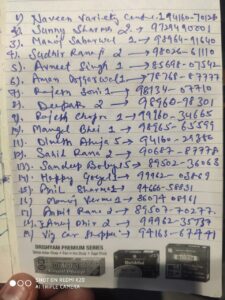 1) Naveen Variety Centre. 1 94160-70128
2). Sunny Sharma 2 → 97294
3). Manoj Sabarwal 1 → 98964-91640
4) Sudhir Rana 2 → 98026-61110
5). Avneet Singh 1 → 85698-07542
6). Aman Aggarwal 1 78768-87777
7). Rajesh Soni 1 → 98134-07710
8). Deepak 2 → 98960-78301
9). Rajesh Chopra 1 → 99160-34665
10). Mangal Bhai 1 → 98965-65599
11). Dinesh Ahuja 5 → 94160-29386
12). Sahil Rana 2 → 90687-87778
13). Sandeep Bobyal 5 → 89502-36068
14). Happy Goyal → 99962-02869
15). Anil Sharma 1 94666-58831
16). Manoj Verma 1 → 86074 08911
17). Ankit Rana 2 → 89507-70277.
18). Anuj Bhir 2 → 99962-35737
19). Vij Car Shoppe 1 → 94163-67991
BRIGHTVIN PREMIUM SERIES
SHOT ON REDMI K20
AI TRIPLE CAMERA